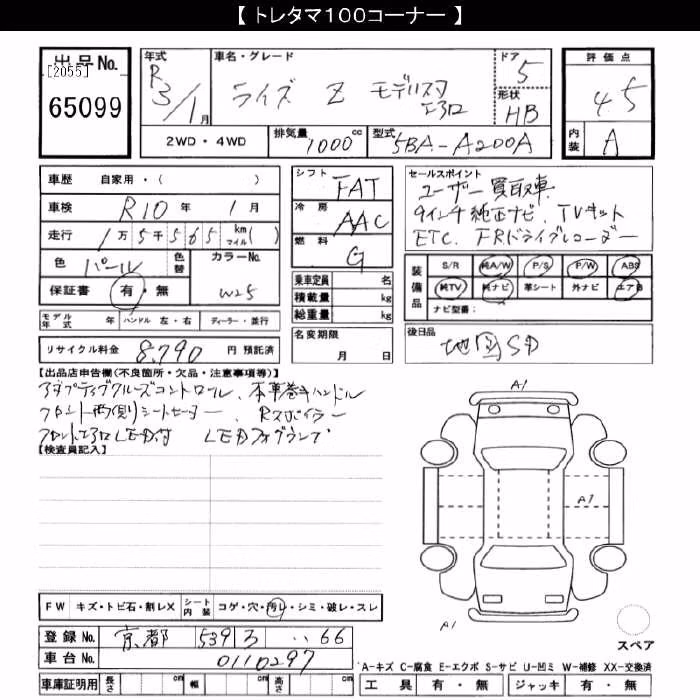 【 トレタマ100コーナー 】
出品No.
[2055]
65099
年式
R
3/1月
車名・グレード
ライズ Z モデリスタ
エアロ
ドア
5
形状
HB
評価点
4.5
内装
A
2WD・4WD
排気量
1000cc
型式
5BA-A200A
車歴 自家用・( )
車検 R10年 1月
走行 1万5千565 km マイル( )
色 パール 色替 カラーNo. W25
保証書 有・無
シフト FAT
冷房 AAC
燃料 G
乗車定員 名
積載量 kg
総重量 kg
セールスポイント
ユーザー買取車
9インチ純正ナビ、TVキット
ETC、FRドライブレコーダー
装備品
S/R 純A/W P/S P/W ABS
純TV 純ナビ 革シート 外ナビ エアB
ナビ型番:
モデル年式 年 ハンドル 左・右 ディーラー・並行
名変期限
月 日
後日品
地図SD
リサイクル料金 8,790 円 預託済
【出品店申告欄(不良箇所・欠品・注意事項等)】
アダプティブクルーズコントロール、本革巻きハンドル
フロント両側シートヒーター、Rスポイラー
フロントエアロLED付 LEDフォグランプ
【検査員記入】
A1
A1
A1
スペア
FW キズ・トビ石・割レX シート内装 コゲ・穴・汚レ・シミ・破レ・スレ
登録No. 京都 539 ろ ‥66
車台No. 0110297
A-キズ C-腐食 E-エクボ S-サビ U-凹ミ W-補修 XX-交換済
車庫証明用 長さ cm 幅 cm 高さ cm
工具 有・無 ジャッキ 有・無